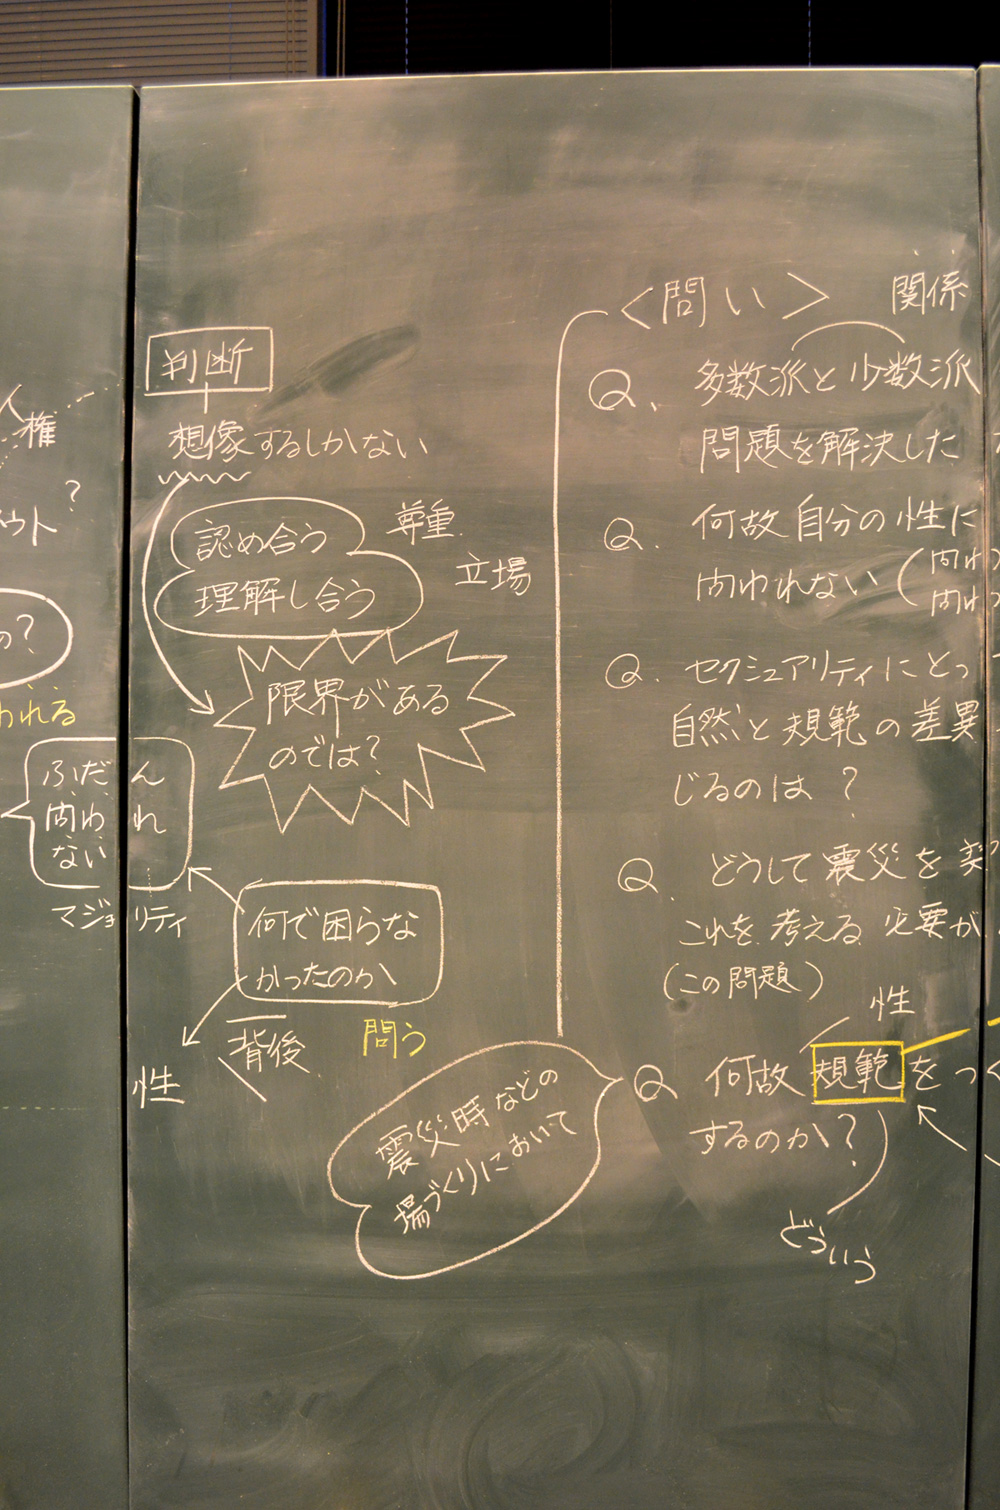 権
?
ウト
の?
われる
ふだん
問われ
ない
マジョリティ
判断
想像するしかない
認め合う
理解し合う
尊重
立場
限界がある
のでは?
何で困らな
かったのか
性
背後
問う
<問い>
関係
Q. 多数派と少数派
問題を解決した
Q. 何故自分の性に
問われない(問わ
問わ
Q. セクシュアリティにとっ
自然と規範の差異
じるのは?
Q. どうして震災を契
これを考える必要が
(この問題)
性
Q 何故規範をつく
するのか?
どういう
震災時などの
場づくりにおいて